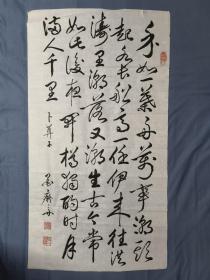 身如一葉舟萬事潮頭
起水長船高一任伊來往洪
濤里潮落又潮生古今常
如此後夜開樽獨酌時月
滿人千里
卜算子